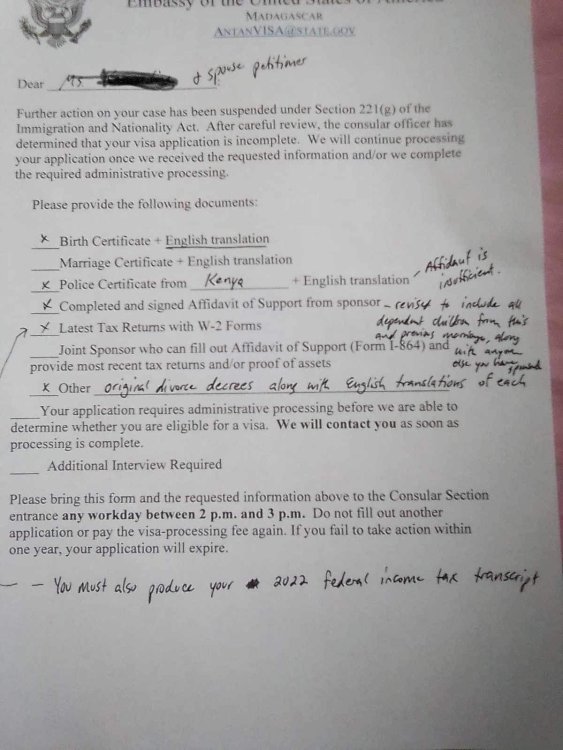 Embassy of the United States of America
MADAGASCAR
ANTANVISA@STATE.GOV
Dear Ms & spouse petitioner
Further action on your case has been suspended under Section 221(g) of the
Immigration and Nationality Act. After careful review, the consular officer has
determined that your visa application is incomplete. We will continue processing
your application once we received the requested information and/or we complete
the required administrative processing.
Please provide the following documents:
x Birth Certificate + English translation
____Marriage Certificate + English translation
x Police Certificate from Kenya + English translation
Affidavit is
insufficient.
x Completed and signed Affidavit of Support from sponsor – revised to include all
dependent children from this
and previous marriage, along
with anyone
else you have
sponsored
x Latest Tax Returns with W-2 Forms
____Joint Sponsor who can fill out Affidavit of Support (Form I-864) and
provide most recent tax returns and/or proof of assets
x Other original divorce decrees along with English translations of each
____Your application requires administrative processing before we are able to
determine whether you are eligible for a visa. We will contact you as soon as
processing is complete.
____ Additional Interview Required
Please bring this form and the requested information above to the Consular Section
entrance any workday between 2 p.m. and 3 p.m. Do not fill out another
application or pay the visa-processing fee again. If you fail to take action within
one year, your application will expire.
– – You must also produce your 2022 federal income tax transcript